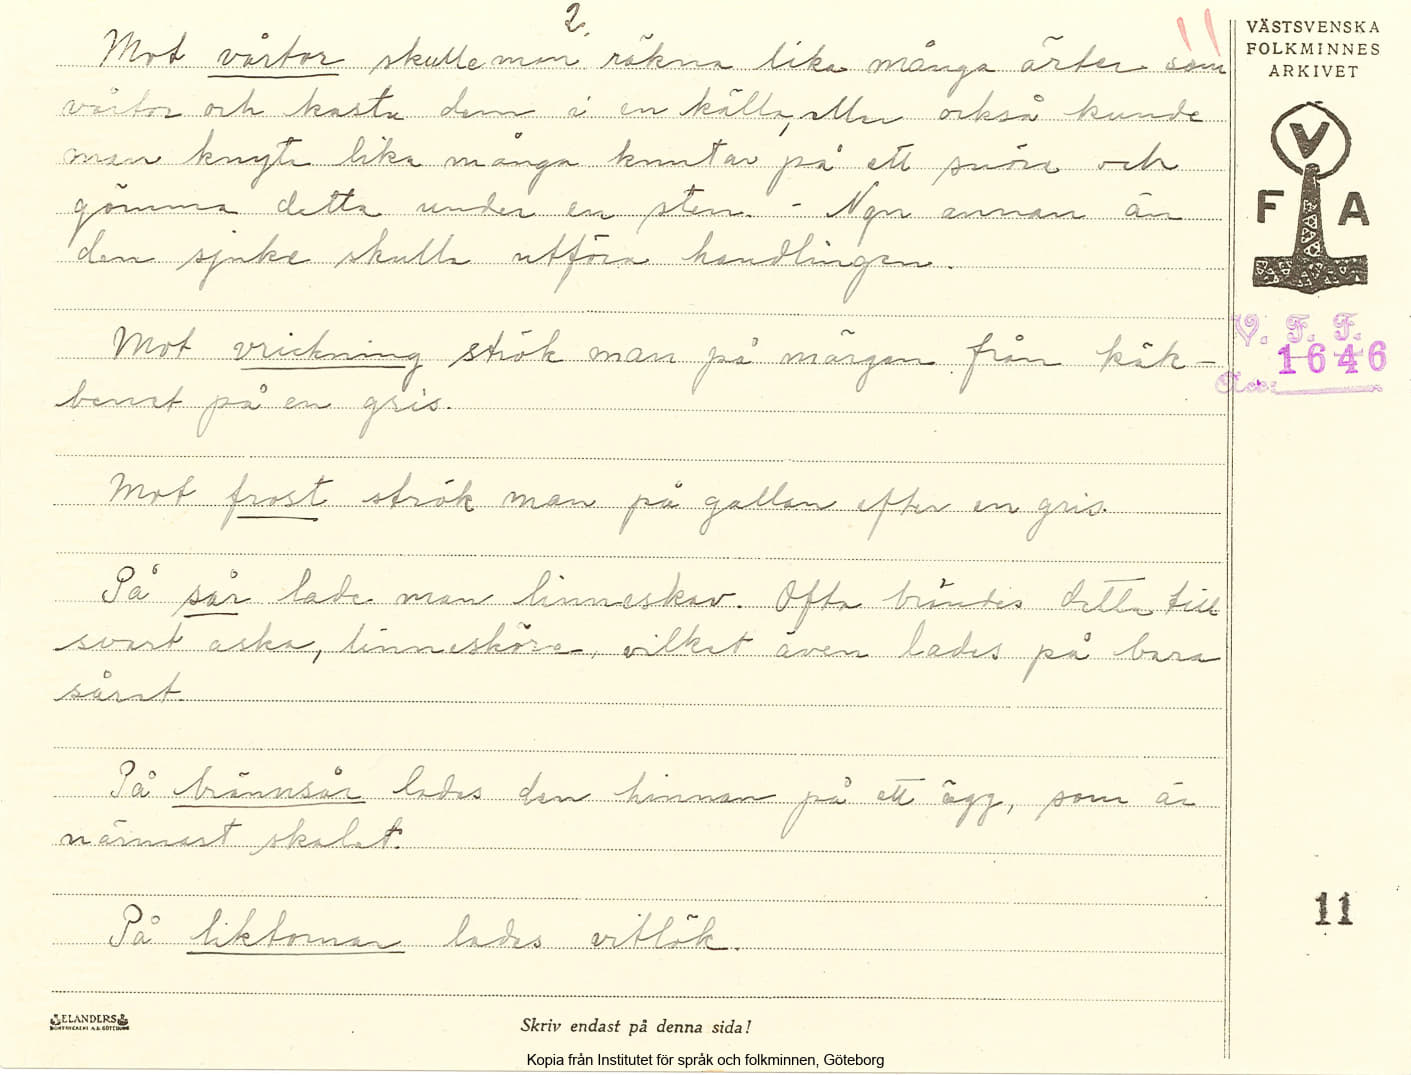 2.
11
Mot vårtor skulle man räkna lika många ärter som
vårtor och kasta dem i en källa, eller också kunde
man knyta lika många knutar på ett snöre och
gömma detta under en sten. - Ngn annan än
den sjuke skulle utföra handlingen.
Mot vrickning strök man på märgen från käk-
benet på en gris.
Mot frost strök man på gallan efter en gris.
På sår lade man linneskav. Ofta brändes detta till
svart aska, linnesköre, vilket även lades på bara
såret.
På brännsår lades den hinnan på ett ägg, som är
närmast skalet.
På liktornar lades vitlök.
VÄSTSVENSKA
FOLKMINNES
ARKIVET
V
F A
V. F. F.
1646
Acc:
11
ELANDERS
BOKTRYCKERI A.B. GÖTEBORG
Skriv endast på denna sida!
Kopia från Institutet för språk och folkminnen, Göteborg